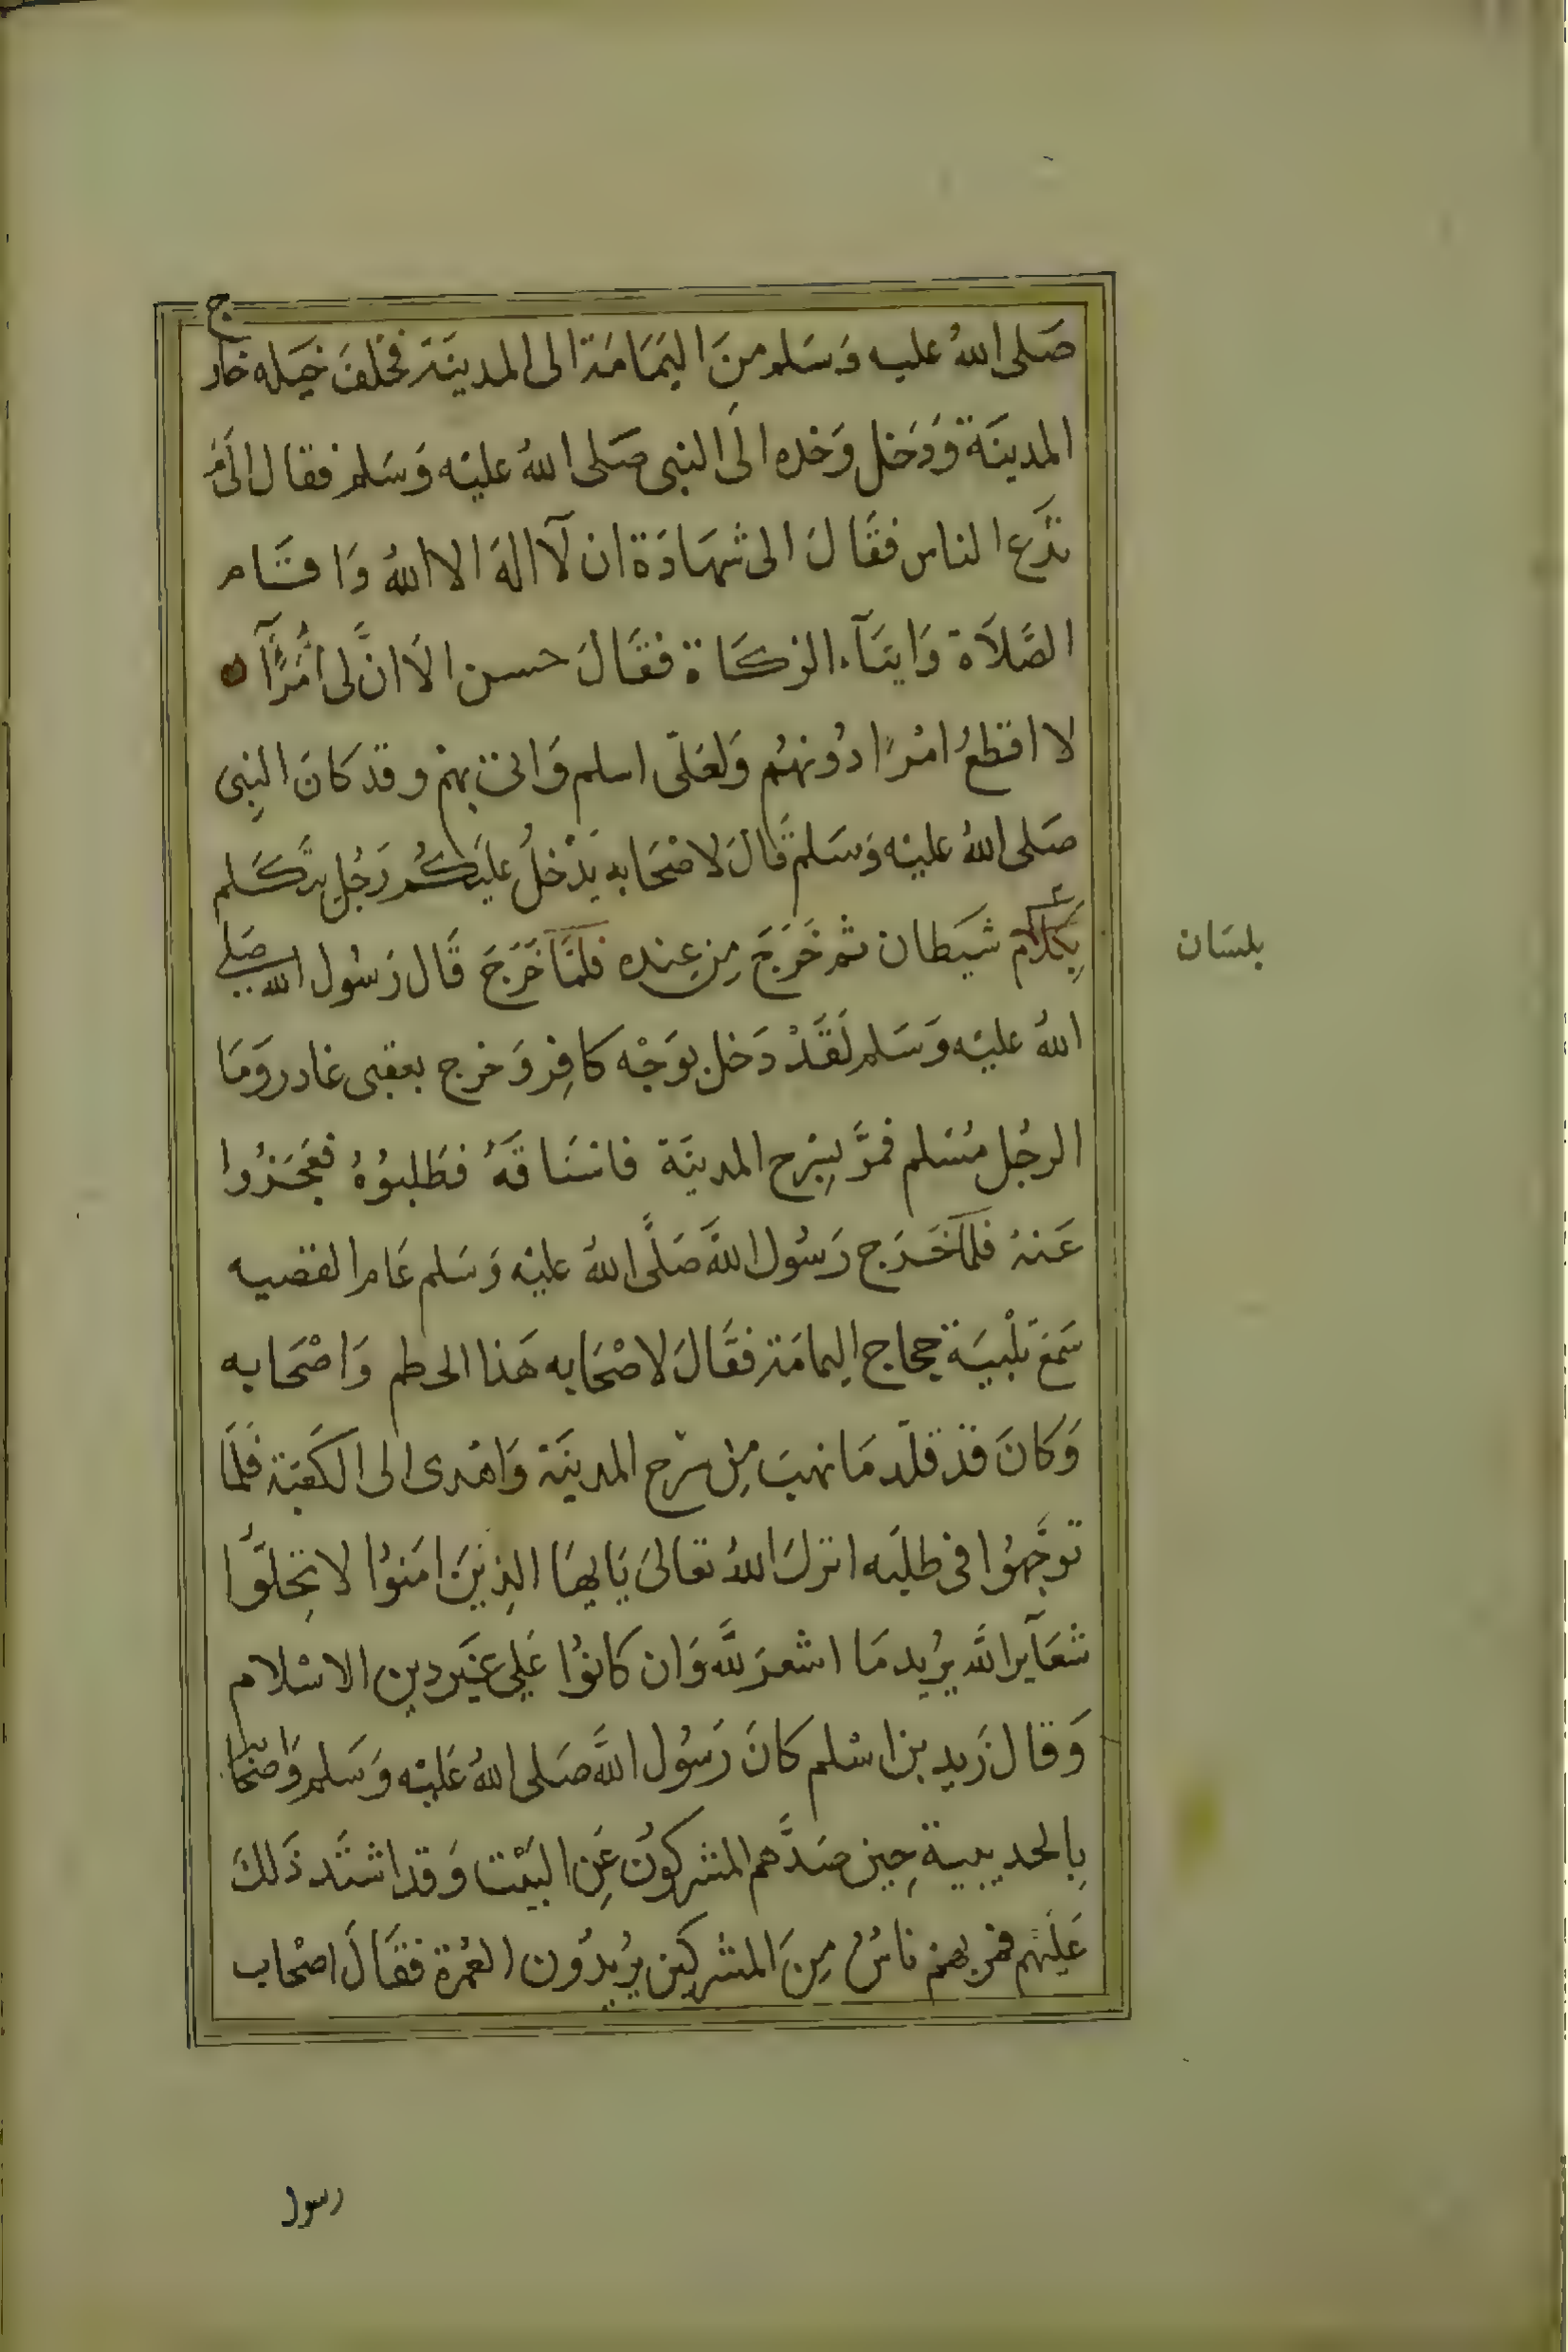 صَلى اللهُ عليه وَسَلم منَ اليَمَامَة الى المدينَة فخلفَ خيَله خارج
المدينَة وَدَخل وَحْده الَى النبى صَلى اللهُ عليْه وَسَلم فقال الَىمَ
تدَع الناس فقَالَ الى شهَادَة ان لآ الهَ الا اللهُ وَاقَام
الصَّلاَة وَايتَآء الزكَاة فقَالَ حسن الاَ انَّ لى امَُرًآ
لا اقطعُ امْرًا دُونهُم وَلعَلّى اسلم وَاتى بهمْ وقدْ كانَ النبِى
صَلى اللهُ عليْه وَسَلم قَالَ لاصْحَابه يَدْخلُ عليَكُم رَجُل يتَكَلم
بِكَلام شيَطان ثم خَرَجَ مِن عِنده فلمَّا خَرَجَ قَال رَسُول الله صَلى
بلسَان
اللهُ عليْه وَسَلم لَقَدْ دَخل بوَجْه كافِر وَخرج بعقبى غادر وَمَا
الرجُل مُسْلم فمرَّ بِسَرْح المدينَة فاسْتَاقَهُ فطَلبُوُهُ فعَجَزُوا
عَنهُ فلمآ خَرَج رَسُول اللهَّ صَلَّى اللهُ عليْه وَسَلم عَام القضيه
سَمعَ تلْبيَة حجاج اليمامَة فقَالَ لاصْحَابه هَذا الحطم وَاصْحَابه
وَكانَ قدْ قلّد مَا نهبَ مِن سَرْح المدينَة وَاهْدى الى الكَعْبَة فَلَمَا
توَجَّهوُا فى طلبَه انزلَ اللهُ تعَالىَ يَايهَا الذِينَ امَنوُا لا تحِلّوُا
شعَآيرالله يرُيد مَا اشعرَ للهَّ وَان كانوُا عَلى غيَر دين الاسْلام
وَقال زَيد بن اسْلم كانَ رَسُول اللهَّ صَلى اللهُ عَليْه وَسَلم وَاصْحَابه
بِالحديبية حِين صَدَّهم المشركوُن عَنِ البَيْت وَقد اشتَد ذَلكَ
عَليْهم فمر بهمْ ناسٌ مِنَ المشركين يرُيدُون العُمْرة فقَالَ اصْحاب
رسول